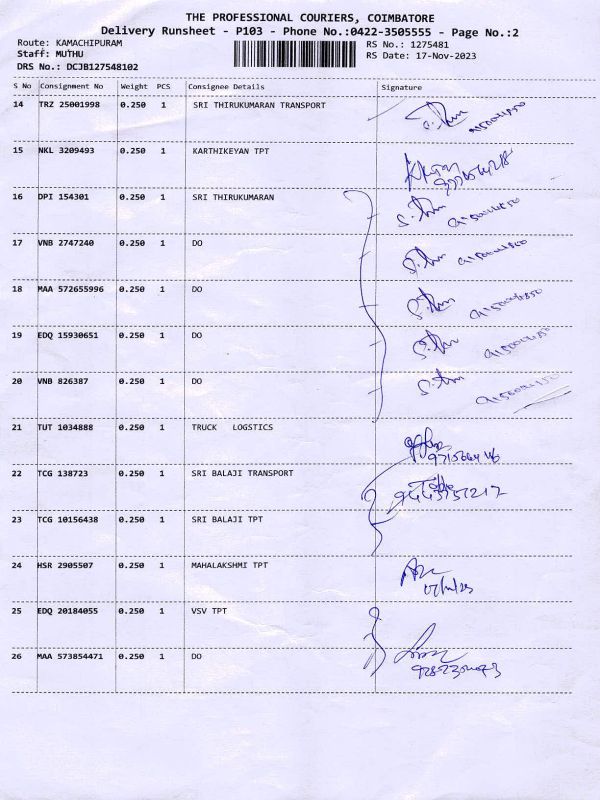 THE PROFESSIONAL COURIERS, COIMBATORE
Delivery Runsheet - P103 - Phone No.:0422-3505555 - Page No.:2
Route: KAMACHIPURAM RS No.: 1275481
Staff: MUTHU RS Date: 17-Nov-2023
DRS No.: DCJB127548102
S No Consignment No Weight PCS Consignee Details Signature
14 TRZ 25001998 0.250 1 SRI THIRUKUMARAN TRANSPORT
15 NKL 3209493 0.250 1 KARTHIKEYAN TPT
16 DPI 154301 0.250 1 SRI THIRUKUMARAN
17 VNB 2747240 0.250 1 DO
18 MAA 572655996 0.250 1 DO
19 EDQ 15930651 0.250 1 DO
20 VNB 826387 0.250 1 DO
21 TUT 1034888 0.250 1 TRUCK LOGSTICS
22 TCG 138723 0.250 1 SRI BALAJI TRANSPORT
9443751217
23 TCG 10156438 0.250 1 SRI BALAJI TPT
24 HSR 2905507 0.250 1 MAHALAKSHMI TPT
25 EDQ 20184055 0.250 1 VSV TPT
26 MAA 573854471 0.250 1 DO